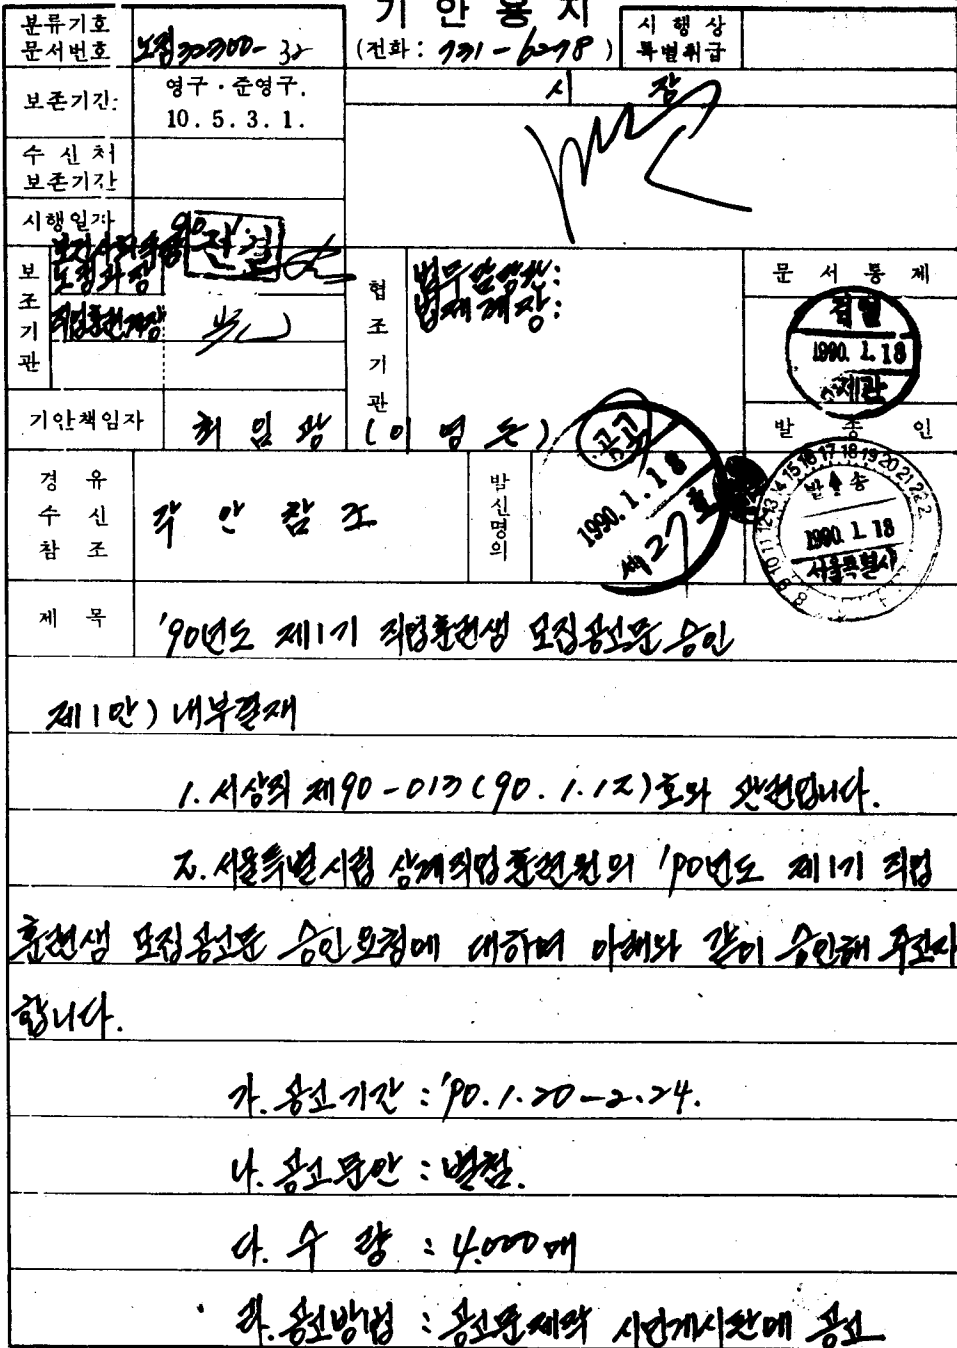 기 안 용 지
분류기호
문서번호
노정32300-32
(전화: 731-6278)
시 행 상
특별취급
보존기간:
영구·준영구.
10. 5. 3. 1.
시 장
수 신 처
보존기간
시행일자
전결
보
조
기
관
보건사회국장
노정과장
직업훈련계장
협
조
기
관
법무담당관:
법제계장:
문 서 통 제
검열
1990. 1. 18
기안책임자
최 임 광 (이 영 돈)
발 송 인
공고
1990. 1. 18
제27호
발송
1990. 1. 18
서울특별시
8 9 10 11 12 13 14 15 16 17 18 19 20 21 22
경 유
수 신
참 조
각 안 참 조
발신명의
제 목
'90년도 제1기 직업훈련생 모집공고문 승인
제1안) 내부결재
1. 서상직 제90-013(90. 1. 12)호와 관련입니다.
2. 서울특별시립 상계직업훈련원의 '90년도 제1기 직업
훈련생 모집공고문 승인요청에 대하여 아래와 같이 승인해 주고자
합니다.
가. 공고기간 : '90. 1. 20 - 2. 24.
나. 공고문안 : 별첨.
다. 수 량 : 4,000매
라. 공고방법 : 공고문제작 시민게시판에 공고